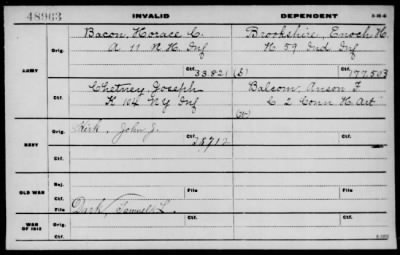 48963 INVALID DEPENDENT 3-164
Bacon, Horace C. Brookshire, Enoch H.
Orig. A 11 N.H. Inf H 59 Ind Inf
ARMY Ctf. 33.821 (b) Ctf. 177.503
Chetney, Joseph Balcom, Anson F.
Ctf. K 104 NY Inf C 2 Conn H. Art
Kirk, John J.
Orig. Ctf. Ctf.
NAVY 28712
Ctf.
OLD WAR Rej.
Ctf. File File
Dark, Samuel L.
WAR OF 1812 Orig. Ctf. Ctf.